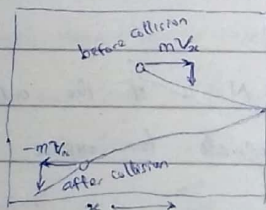 before collision
mVx
-mVx
after collision
x